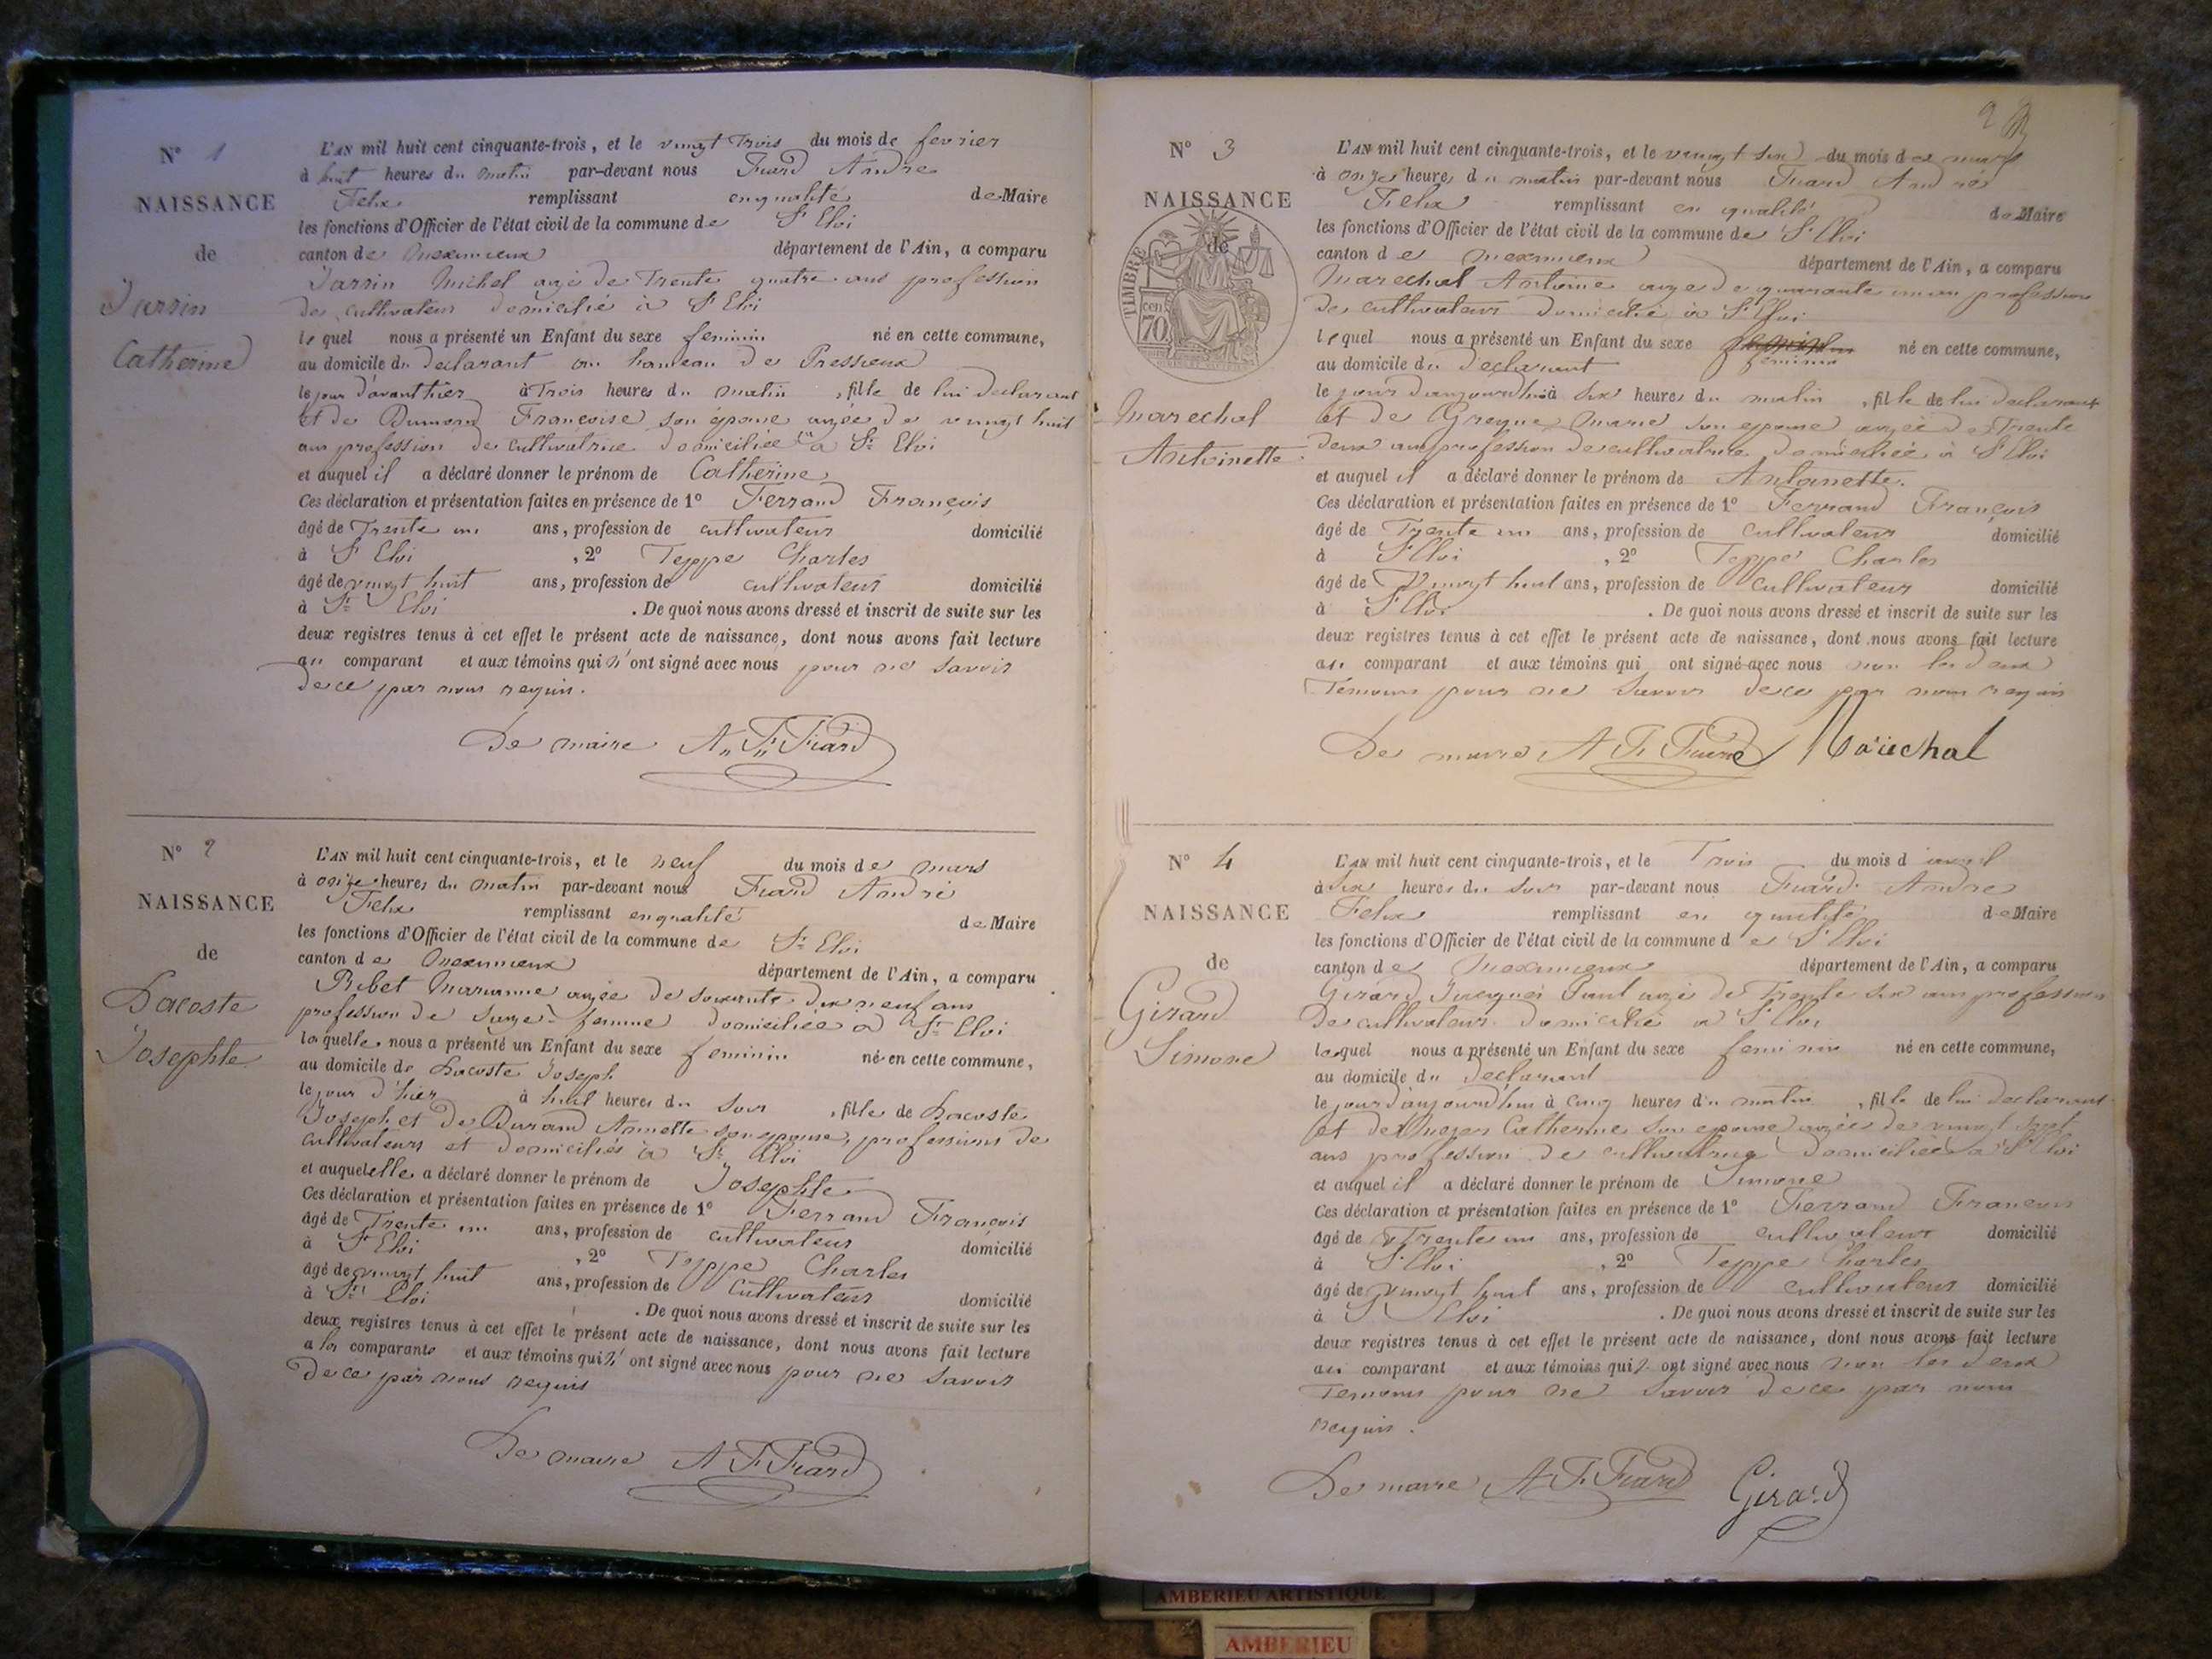 N° 1
NAISSANCE
de
Jarrin
Catherine
L'AN mil huit cent cinquante-trois, et le vingt trois du mois de fevrier
à huit heures du matin par-devant nous Fiard André
Felix remplissant en qualité de Maire
les fonctions d'Officier de l'état civil de la commune de St Eloi
canton de Meximieux département de l'Ain, a comparu
Jarrin Michel agé de Trente quatre ans profession
de cultivateur domicilié à St Eloi
lequel nous a présenté un Enfant du sexe feminin né en cette commune,
au domicile du déclarant au hameau de Pressieux
le jour d'avant hier à Trois heures du matin, fille de lui déclarant
et de Dumond Françoise son épouse agée de vingt huit
ans profession de cultivatrice domiciliée à St Eloi
et auquel il a déclaré donner le prénom de Catherine
Ces déclaration et présentation faites en présence de 1° Ferrand François
âgé de Trente un ans, profession de cultivateur domicilié
à St Eloi, 2° Teppe Charles
âgé de vingt huit ans, profession de cultivateur domicilié
à St Eloi. De quoi nous avons dressé et inscrit de suite sur les
deux registres tenus à cet effet le présent acte de naissance, dont nous avons fait lecture
au comparant et aux témoins qui n'ont signé avec nous pour ne savoir
de ce par nous requis.
Le maire A. F. Fiard
N° 2
NAISSANCE
de
Lacoste
Josephte
L'AN mil huit cent cinquante-trois, et le neuf du mois de mars
à onze heures du matin par-devant nous Fiard André
Felix remplissant en qualité de Maire
les fonctions d'Officier de l'état civil de la commune de St Eloi
canton de Meximieux département de l'Ain, a comparu
Ribet Marianne agée de soixante dix neuf ans
profession de sage-femme domiciliée à St Eloi
laquelle nous a présenté un Enfant du sexe feminin né en cette commune,
au domicile de Lacoste Joseph
le jour d'hier à huit heures du soir, fille de Lacoste
Joseph et de Durand Annette son epouse, professions de
cultivateurs et domiciliés à St Eloi
et auquel elle a déclaré donner le prénom de Josephte
Ces déclaration et présentation faites en présence de 1° Ferrand François
âgé de Trente un ans, profession de cultivateur domicilié
à St Eloi, 2° Teppe Charles
âgé de vingt huit ans, profession de Cultivateur domicilié
à St Eloi. De quoi nous avons dressé et inscrit de suite sur les
deux registres tenus à cet effet le présent acte de naissance, dont nous avons fait lecture
a la comparante et aux témoins qui n'ont signé avec nous pour ne savoir
de ce par nous requis
Le maire A F Fiard
2
N° 3
NAISSANCE
de
TIMBRE
70
cen
Marechal
Antoinette
L'AN mil huit cent cinquante-trois, et le vingt six du mois de mars
à onze heures du matin par-devant nous Fiard André
Felix remplissant en qualité de Maire
les fonctions d'Officier de l'état civil de la commune de St Eloi
canton de Meximieux département de l'Ain, a comparu
Marechal Antoine agé de quarante un an profession
de cultivateur domicilié à St Eloi
lequel nous a présenté un Enfant du sexe feminin né en cette commune,
au domicile du declarant
le jour d'aujourd'hui à six heures du matin, fille de lui declarant
et de Marie son epouse agée de Trente
deux ans profession de cultivatrice domiciliée à St Eloi
et auquel il a déclaré donner le prénom de Antoinette.
Ces déclaration et présentation faites en présence de 1° Ferrand François
âgé de Trente un ans, profession de cultivateur domicilié
à St Eloi, 2° Teppe Charles
âgé de Vingt huit ans, profession de Cultivateur domicilié
à St Eloi. De quoi nous avons dressé et inscrit de suite sur les
deux registres tenus à cet effet le présent acte de naissance, dont nous avons fait lecture
au comparant et aux témoins qui ont signé avec nous non les deux
Temoins pour ne savoir de ce par nous requis
Le maire A F Fiard Maréchal
N° 4
NAISSANCE
de
Girard
Simone
L'AN mil huit cent cinquante-trois, et le Trois du mois d avril
à six heures du soir par-devant nous Fiard André
Felix remplissant en qualité de Maire
les fonctions d'Officier de l'état civil de la commune de St Eloi
canton de Meximieux département de l'Ain, a comparu
Girard Jacques Paul agé de Trente six ans profession
de cultivateur domicilié à St Eloi
lequel nous a présenté un Enfant du sexe feminin né en cette commune,
au domicile du declarant
le jour d'aujourd'hui à cinq heures du matin, fille de lui declarant
et de Catherine son epouse agée de vingt sept
ans profession de cultivatrice domiciliée à St Eloi
et auquel il a déclaré donner le prénom de Simone
Ces déclaration et présentation faites en présence de 1° Ferrand François
âgé de Trente un ans, profession de cultivateur domicilié
à St Eloi, 2° Teppe Charles
âgé de vingt huit ans, profession de cultivateur domicilié
à St Eloi. De quoi nous avons dressé et inscrit de suite sur les
deux registres tenus à cet effet le présent acte de naissance, dont nous avons fait lecture
au comparant et aux témoins qui ont signé avec nous non les deux
Temoins pour ne savoir de ce par nous
requis.
Le maire A. F. Fiard Girard
AMBERIEU ARTISTIQUE
AMBERIEU